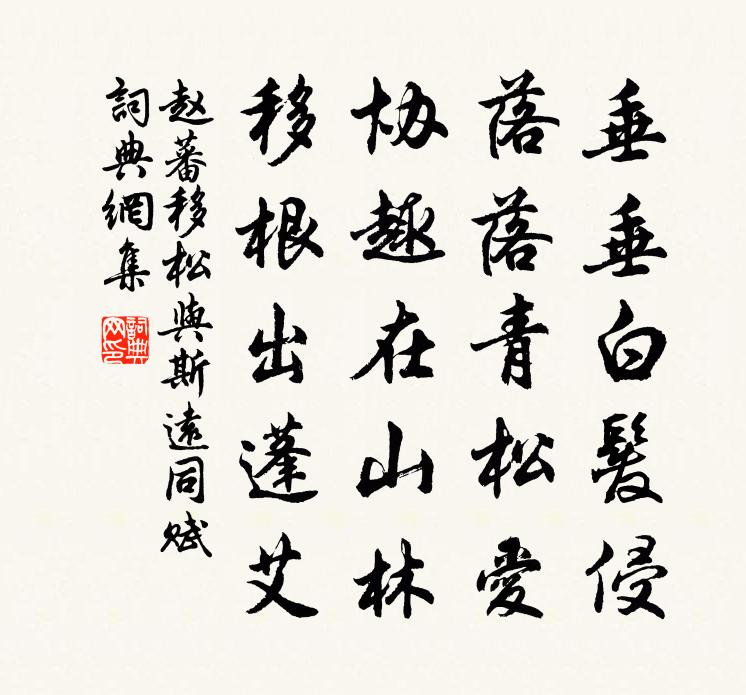 垂垂白髮侵
落落青松愛
协趣在山林
移根出蓬艾
赵蕃移松與斯遠同賦
詞典網集
詞典
网印